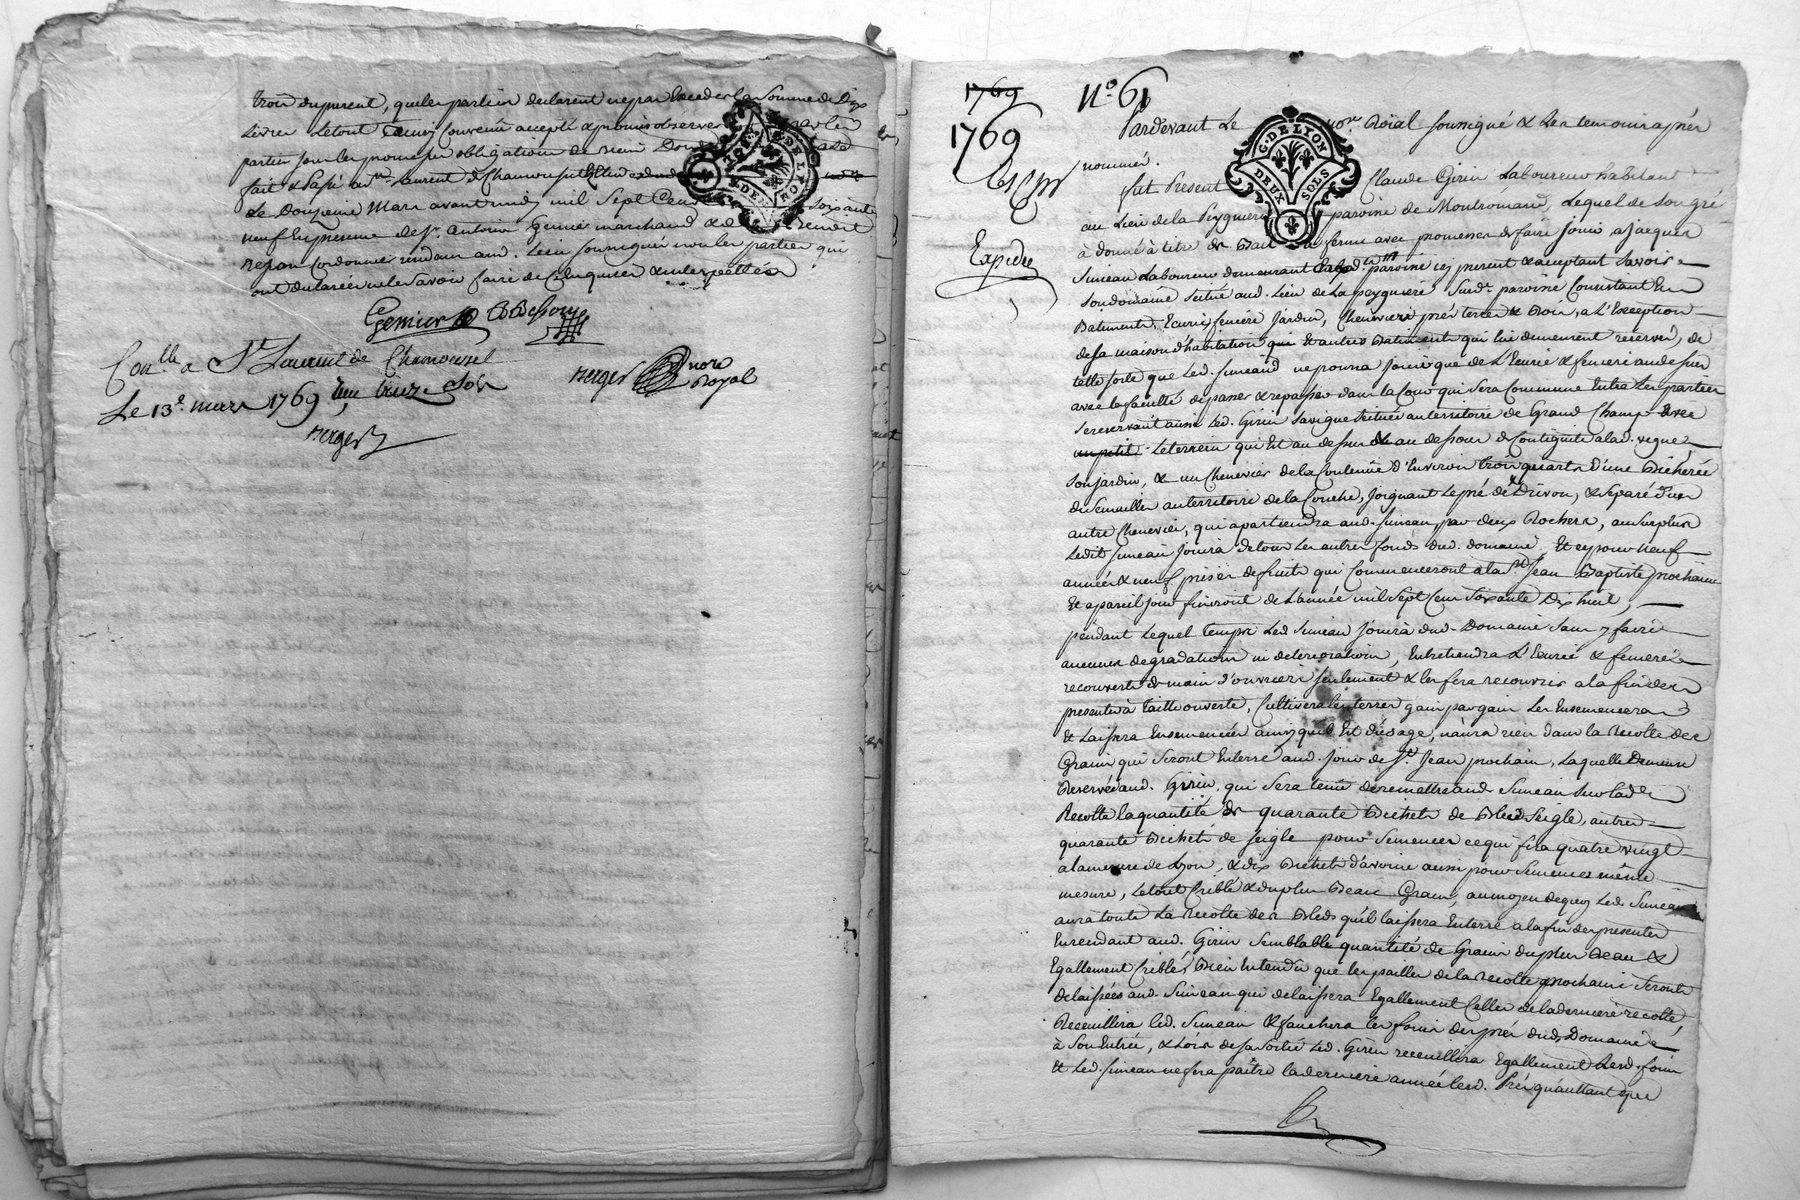 trois du present, que les parties declarent ne pas Exceder la Somme de Dix
Livres Le tout Ainsi Convenu accepté & promis observer par les
parties sous les promesses obligations de
fait & Passé aud. St. Laurent de Chamousset
Le Douzieme Mars avant midy mil Sept Cent Soixante
neuf En presence de Sr. Antoine Genier marchand & de Benoit
cordonnier residans aud. Lieu soussignés non les parties qui
ont declaré ne le savoir faire de ce Enquises & interpellées
Genier
Conllé a St. Laurent de Chamousset
Le 13e. mars 1769 reçu treize Sols
Berger
Berger nore
Royal
1769
1769
Expediée
No. 61
G. DE LYON
DEUX SOLS
Pardevant Le nore. Roïal soussigné & Les temoins aprés
nommés.
fut Present Claude Girin Laboureur habitant
au Lieu de la Peyguiere paroisse de Montromand, Lequel de Son gré
à donné à titre de Bail a ferme avec promesses de faire jouir a jacques
Simean Laboureur demeurant paroisse icy present & acceptant Savoir
Son domaine Scitué aud. Lieu de La peyguiere Susd. paroisse Consistant En
Batiments, Ecurie, feniere Jardin, Chenevier prés terres & Bois, a L'Exception
de sa maison d'habitation qui Et autres Batiments qui lui demeurent reservés, de
telle sorte que Led. Simeand ne pourra Jouir que de L'Ecurie & feniere audessus
avec la faculté de passer & repasser dans la Cour qui sera Commune Entre Les parties
Se reservant aussi Led. Girin Sa vigne Scituée au territoire de Grand Champ avec
un petit Le terrein qui Est au dessus & au dessous & Contiguité a lad. vigne
Son jardin, & un Chenevier de la Contenue d'Environ trois quarts d'une Bicherée
de Semailles au territoire de la Conche, joignant Le pré de Drivon, & Separé d'un
autre Chenevier, qui apartiendra aud. Simean, par deux Rochers, au Surplus
Ledit Simean jouira de tous Les autres fonds dud. domaine, Et ce pour neuf
années & neuf prises de fruits qui Commenceront a la St. Jean Baptiste prochaine
Et a pareil jour finiront de L'année mil Sept Cent Soixante Dix huit,
pendant Lequel temps Led. Simean jouira dud. Domaine Sans y faire
aucunes degradations ni deteriorations, Entretiendra L'Ecurie & feniere
recouverts de main d'ouvriers seulement & les fera recouvrir a la fin des
presentes à Taille ouverte, Cultivera les terres gain par gain Les Ensemencera
Et Laissera Ensemencées ainsy qu'il Est d'usage, n'aura rien dans la Recolte des
Grains qui Seront Enterre aud. jour de St. Jean prochain, Laquelle Demeure
Reservée aud. Girin, qui Sera tenu de remettre aud. Simean Sur lad.
Recolte la quantité de quarante Bichets de Bled Seigle, autres
quarante Bichets de Seigle pour Semences ce qui fera quatre vingt
a la mesure de Lyon, & dix Bichets d'avoine aussi pour Semences même
mesure, Le tout Criblé & du plus Beau Grain, au moyen de quoy Led. Simean
aura toute La recolte des Bleds qu'il laissera Enterre a la fin des presentes
En rendant aud. Girin Semblable quantité de Grains du plus Beau &
Egallement Criblés, Bien Entendu que les pailles de la recolte prochaine Seront
delaissées aud. Simean qui delaissera Egallement Celles de la derniere recolte,
Receuillira led. Simean & fauchera les foins des prés dud. Domaine
à Son Entrée, & Lors de sa Sortie Led. Girin receuillira Egallement Lesd. foins
Et Led. Simean ne fera paitre la derniere année lesd. Prés qu'autant que